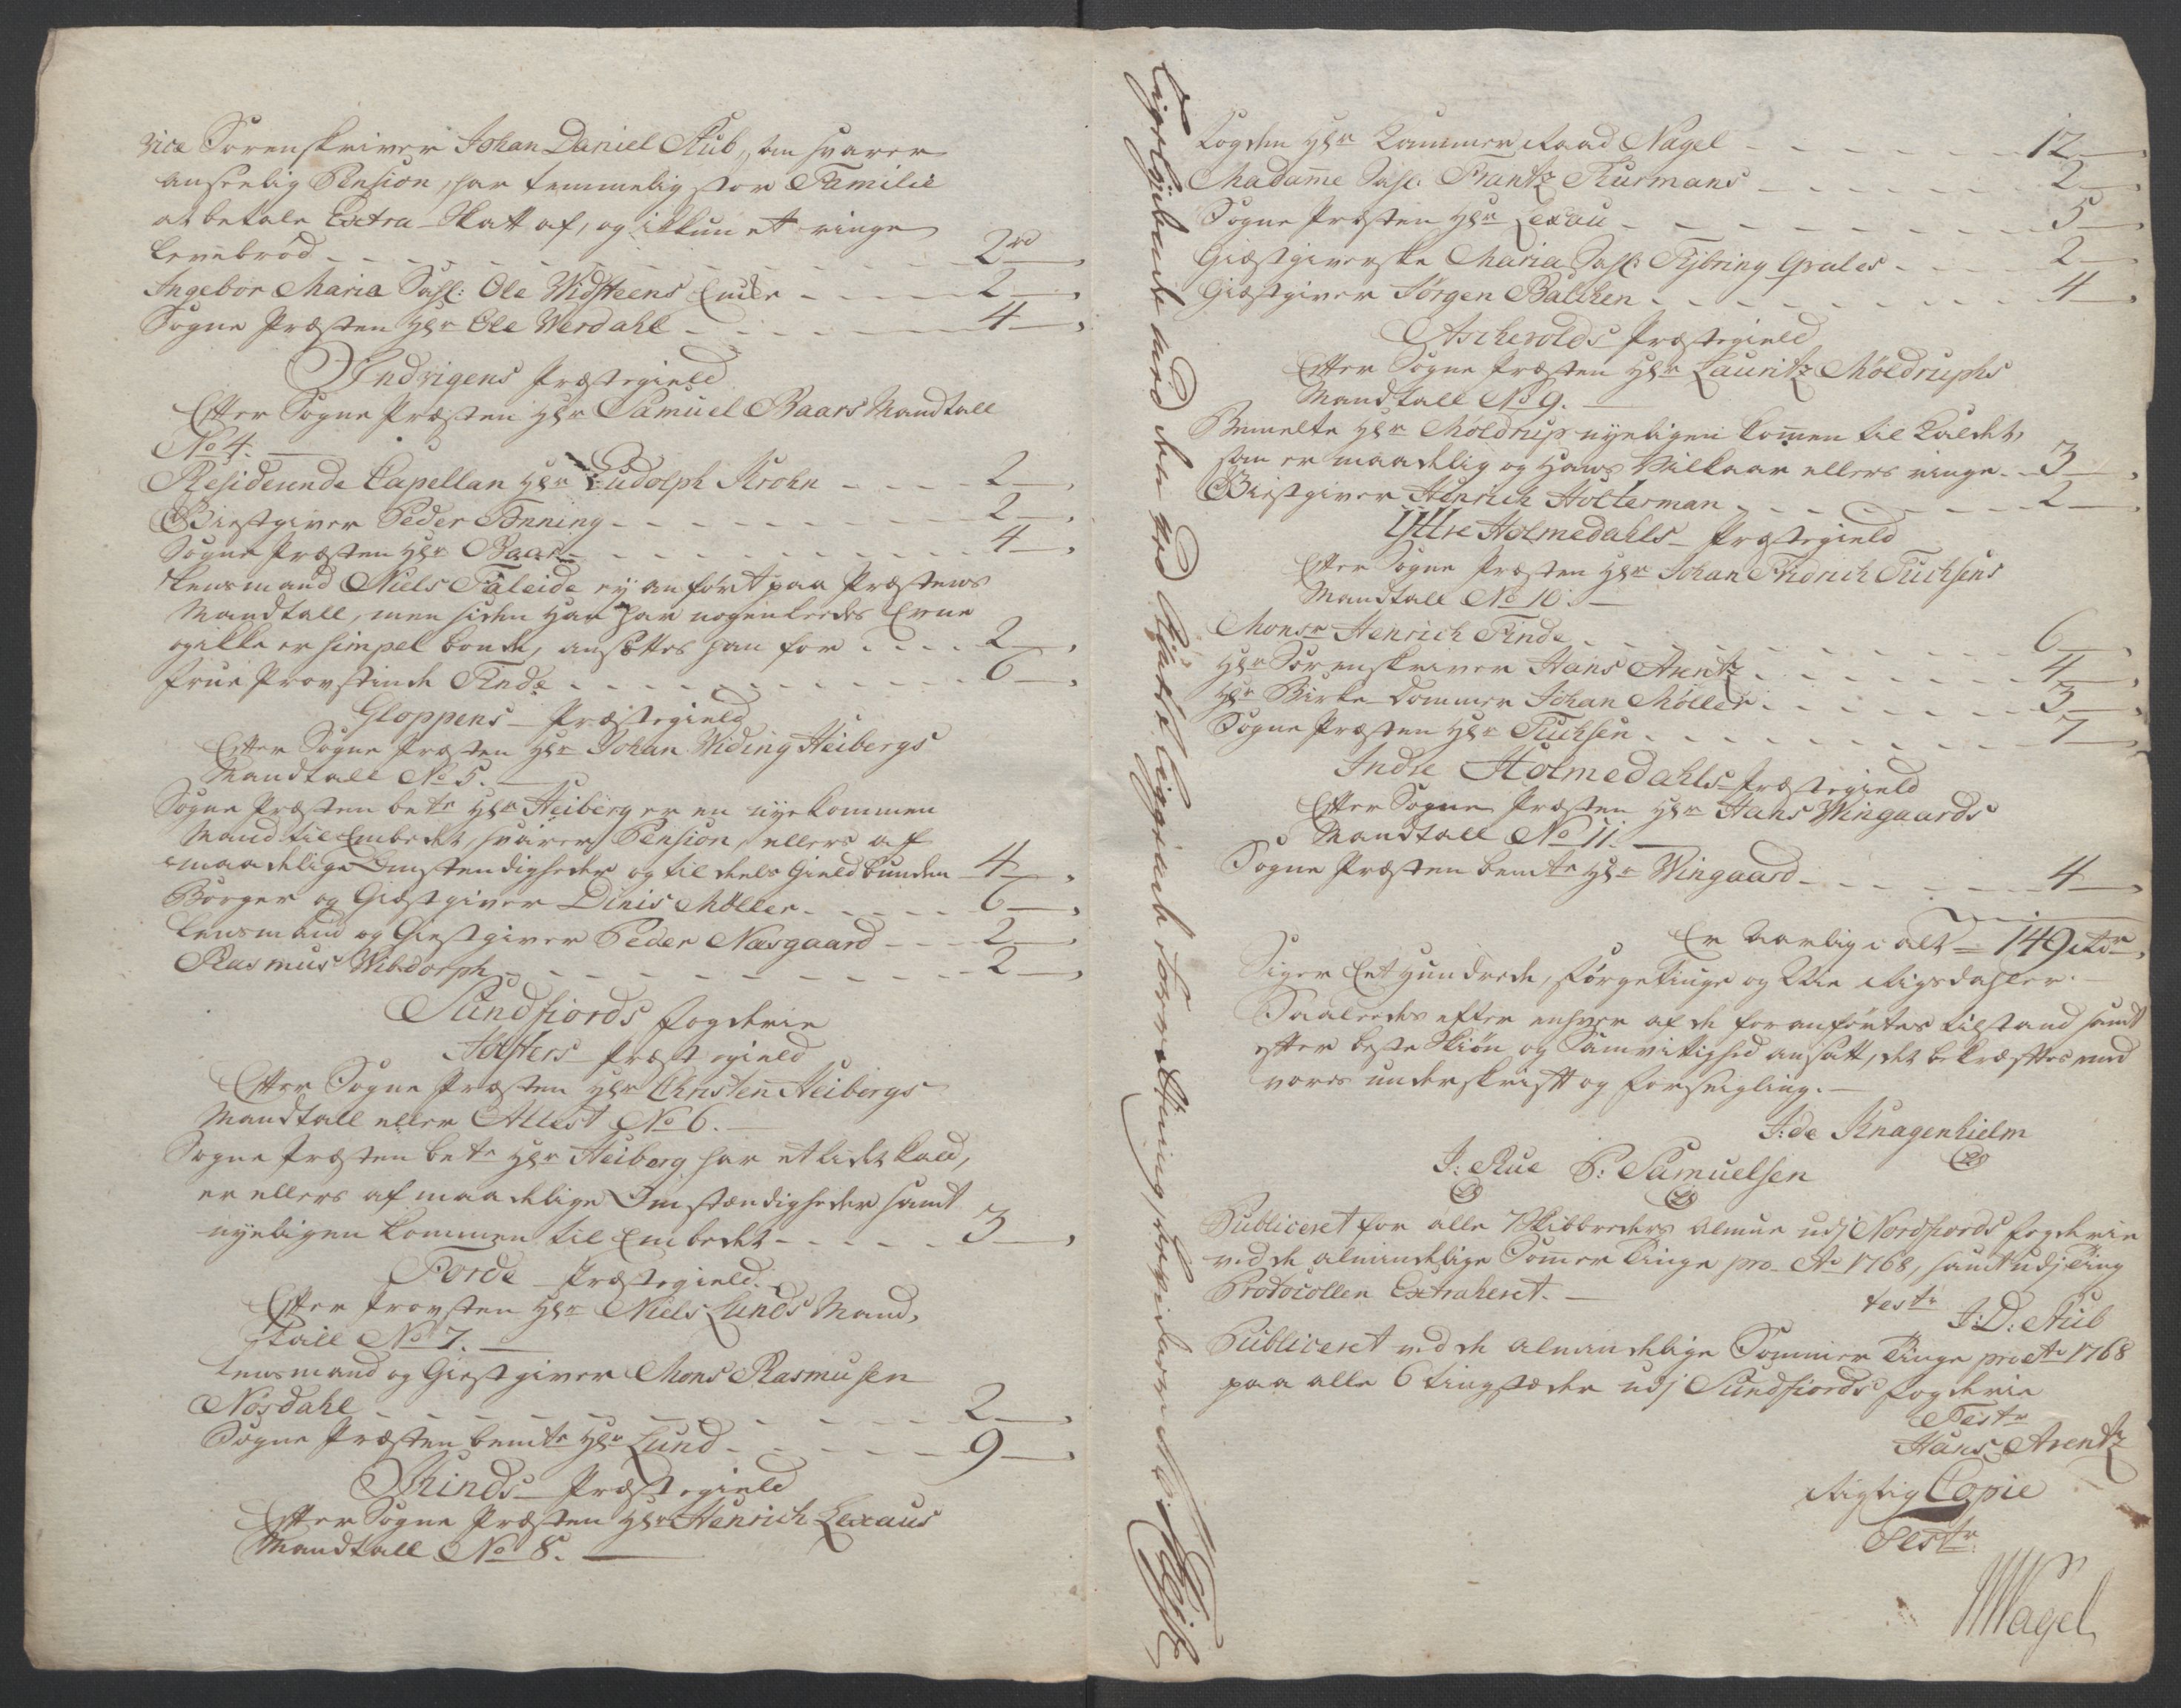 Vice Sorenskriver Johan Daniel Stub, som svarer
anseelig Pension, har temmelig stor Familie
at betale Extra-Skatt af, og ikkun et ringe
Levebrød - - - 2 rd
Ingebor Maria Sahl: Ole Widsteens Encke - - - 2 -
Sogne Præsten Hr Ole Werdahl - - - 4 -
Indvigens Præstegield
Efter Sogne Præsten Hr Samuel Baars Mandtall
No 4. -
Residerende Capellan Hr Ludolph Krohn - - - 2 -
Giestgiver Peder Tønning - - - 2 -
Sogne Præsten Hr Baar - - - 4 -
Lensmand Niels Faleide ey anført paa Præstens
Mandtall, men siden han har nogenledes Evne
og ikke er simpel bonde, ansættes han for - - - 2 -
Frue Provstinde Finde - - - 6 -
Gloppens Præstegield
Efter Sogne Præsten Hr Johan Widing Heibergs
Mandtall No 5. -
Sogne Præsten bete Hr Heiberg er en nye kommen
Mand til Embedet, svarer Pension, ellers af
maadelige Omstendigheder og til deels Gieldbunden 4 -
Borger og Giestgiver Dinis Møller - - - 6 -
Lensmand og Giestgiver Peder Næsgaard - - - 2 -
Rasmus Wibdorph - - - 2 -
Sundfiords fogderie
Jølsters Præstegield
Efter Sogne Præsten Hr Christen Heibergs
Mandtall eller Attest No 6. -
Sogne Præsten bete Hr Heiberg har et lidet Kald,
er ellers af maadelige Omstændigheder samt
nyeligen kommen til Embedet - - - 3 -
Førde Præstegield.
Efter Provsten Hr Niels Lunds Mand-
tall No 7. -
Lensmand og Giestgiver Mons Rasmusen
Nøsdahl - - - 2 -
Sogne Præsten bemte Hr Lund - - - 9 -
Kinds Præstegield
Efter Sogne Præsten Hr Henrich Lexaus
Mandtall No 8. -
Fogden Hr Kammer Raad Nagel - - - 12 -
Madame Sahl: Frantz Kurmans - - - 2 -
Sogne Præsten Hr Lexau - - - 5 -
Giæstgiverske Maria Sahl: Tybring - - - 2 -
Giæstgiver Jørgen Balchen - - - 4 -
Aschevolds Præstegield
Efter Sogne Præsten Hr Lauritz Møldruphs
Mandtall No 9. -
Bemelte Hr Møldrup nyeligen kommen til Kaldet,
som er maadelig og hans Vilkaar ellers ringe - 3 -
Giestgiver Henrich Holterman - - - 2 -
Yttre Holmedahls Præstegield
Efter Sogne Præsten Hr Johan Fridrich Tuchsens
Mandtall No 10. -
Monsr Henrich Finde - - - 6 -
Hr Sorenskriver Hans Arentz - - - 4 -
Hr Birke-Dommer Johan Møller - - - 3 -
Sogne Præsten Hr Tuchsen - - - 7 -
Indre Holmedahls Præstegield
Efter Sogne Præsten Hr Hans Wingaards
Mandtall No 11. -
Sogne Præsten bemte Hr Wingaard - - - 4 -
Er Aarlig i alt = 149 Rdr
Siger Eet Hundrede, Førgetiuge og Nie Rigsdahler. -
Saaledes efter enhver af de foranførtes tilstand samt
efter beste Skiøn og Samvittighed ansatt, det bekræftes med
vores underskrift og forseigling. -
J: de Knagenhielm
J: Rue P: Samuelsen
Publiceret for alle 7 Skibbreders Almue udj Nordfiords fogderie
ved de almindelige Sommer Tinge pro Ao 1768, samt udj Ting
Protocollen Extraheret. -
teste
J: D: Stub
Publiceret ved de almindelige Sommer Tinge pro Ao 1768
paa alle 6 tingstæder udj Sundfiords fogderie
Teste
Hans Arentz
Rigtig Copie
Teste
Nagel